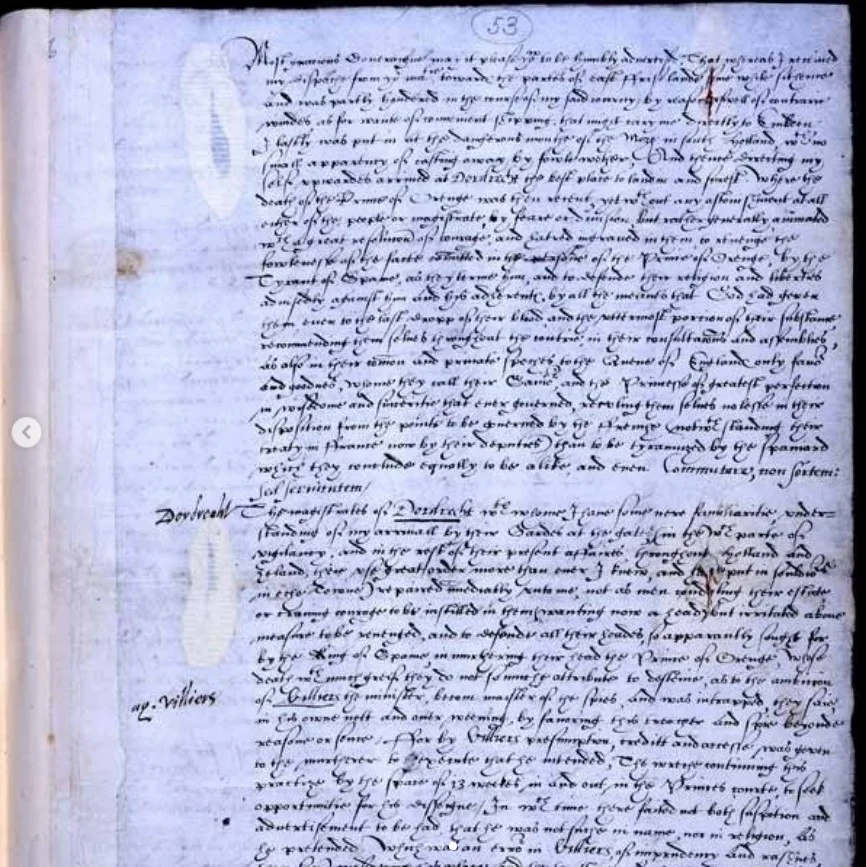 53
Most gracious Soueraigne may it please yow to be humbly aduertised. That whereas I receaued
my dispatche from yor matie towardes the partes of east ffriseland, some while sithence
and was partly hyndered in the course of my said iourny, by reason of contrarie
windes as for wante of conuenient shipping, that might cary me directly to Emden
I lastly was put in at the dangerous mouthe of the Maze in south Holland, wth no
small apparency of casting away by fowle wether. And thence directing my
self vpwardes arriued at Dordrecht the best place to lande and fittest. Where the
death of the Prince of Orenge was then recent, yet wthout any astonishment at all
either of the people or magistrate, by feare or diuision, but rather generally animated
wth a great resolution of courage, and hatred ingraued in them, to reuenge the
fowlenesse of the facte comitted in the persone of the Prince of Orenge, by the
Tyrant of Spaine, as they terme him, and to defende their religion and liberties
aduisedly against him and his adherents, by all the meanes that God had geuen
them euen to the last dropp of their blud, and the vttermost portion of their substance
recommending them selues throughout the contrie, in their consultations and assemblies,
as also in their comon and priuate speches, to the Quene of England, only fauor
and goodnes, whome they call their and the Princesse of greatest perfection
in wisedome and sinceritie that euer gouerned, reposing them selues no lesse in their
disposition from the points to be gouerned by the ffrenche (notwth standing their
treaty in ffrance now by their deputies) than to be tyrannized by the Spaniard
which they conclude equally to be alike, and euen Commutare, non sortem:
sed seruitutem/
Dordrecht The magistrates of Dordrecht wth whome I haue some nere familiaritie, vnder=
standing of my arriuall by their Gardes at the gate (in the wch parte of
vigilancy, and in the rest of their present affaires throughout Holland and
Zeland, their vse great order more than euer I knew, and put in souldiors
in eche Towne) repaired imediatly vnto me, not as men condoling their estate
or crauing courage to be instilled in them (wanting now a head) but irritated aboue
measure to be reuenged, and to defende all their heades so apparantly sought for
by the King of Spaine, in murthering their head the Prince of Orenge, whose
death wth much grief, they do not so much attribute to destenie, as to the ambition
ag. Villiers of Villiers the minister, becom maister of the spies, and was intrapped, they saie,
in his owne nett and ouer weening, by fauoring this treacher and spie beyonde
reason or sence. ffor by Villiers presumption, creditt and accesse, was geuen
to the murtherer to execute that he intended. The wretche continuing this
practize by the space of 13 weekes, in and out, in the Princes courte, to seek
opportunitie for his disseigne/ In wch time there fayled not both suspition and
aduertisement to be had, that he was not suche in name, nor in religion, as
he pretended. Which was an error in Villiers, of imprudency and rashnes